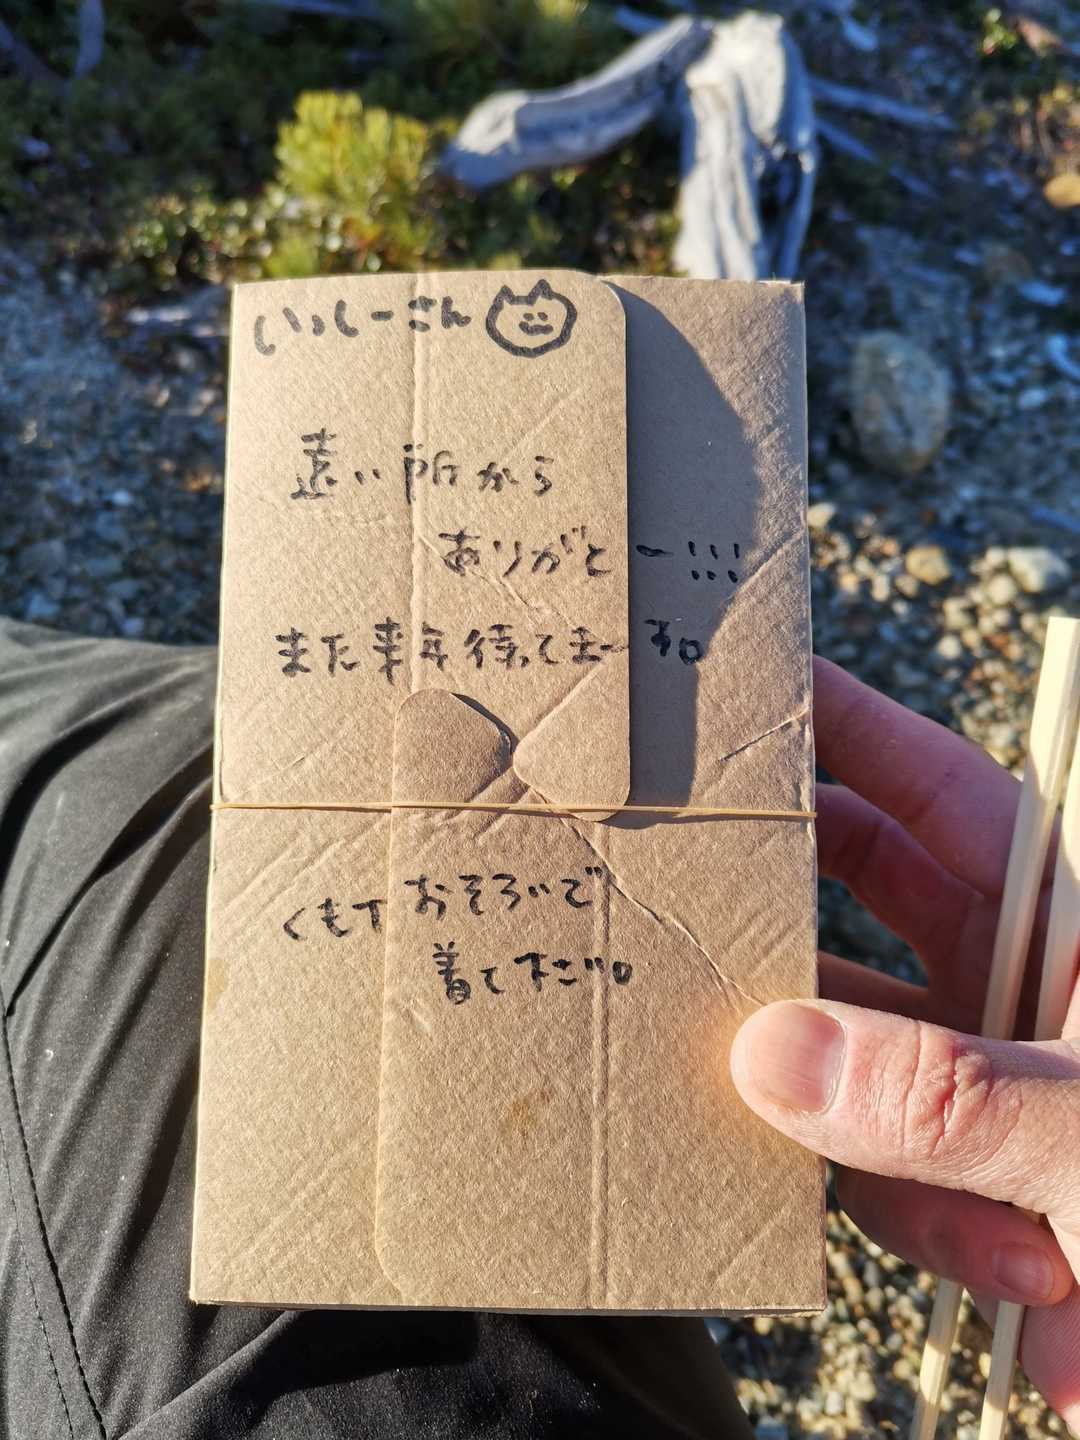 いっしーさん
遠い所から
ありがとー!!!
また来年待ってまーす。
くもT おそろいで
着て下さい。